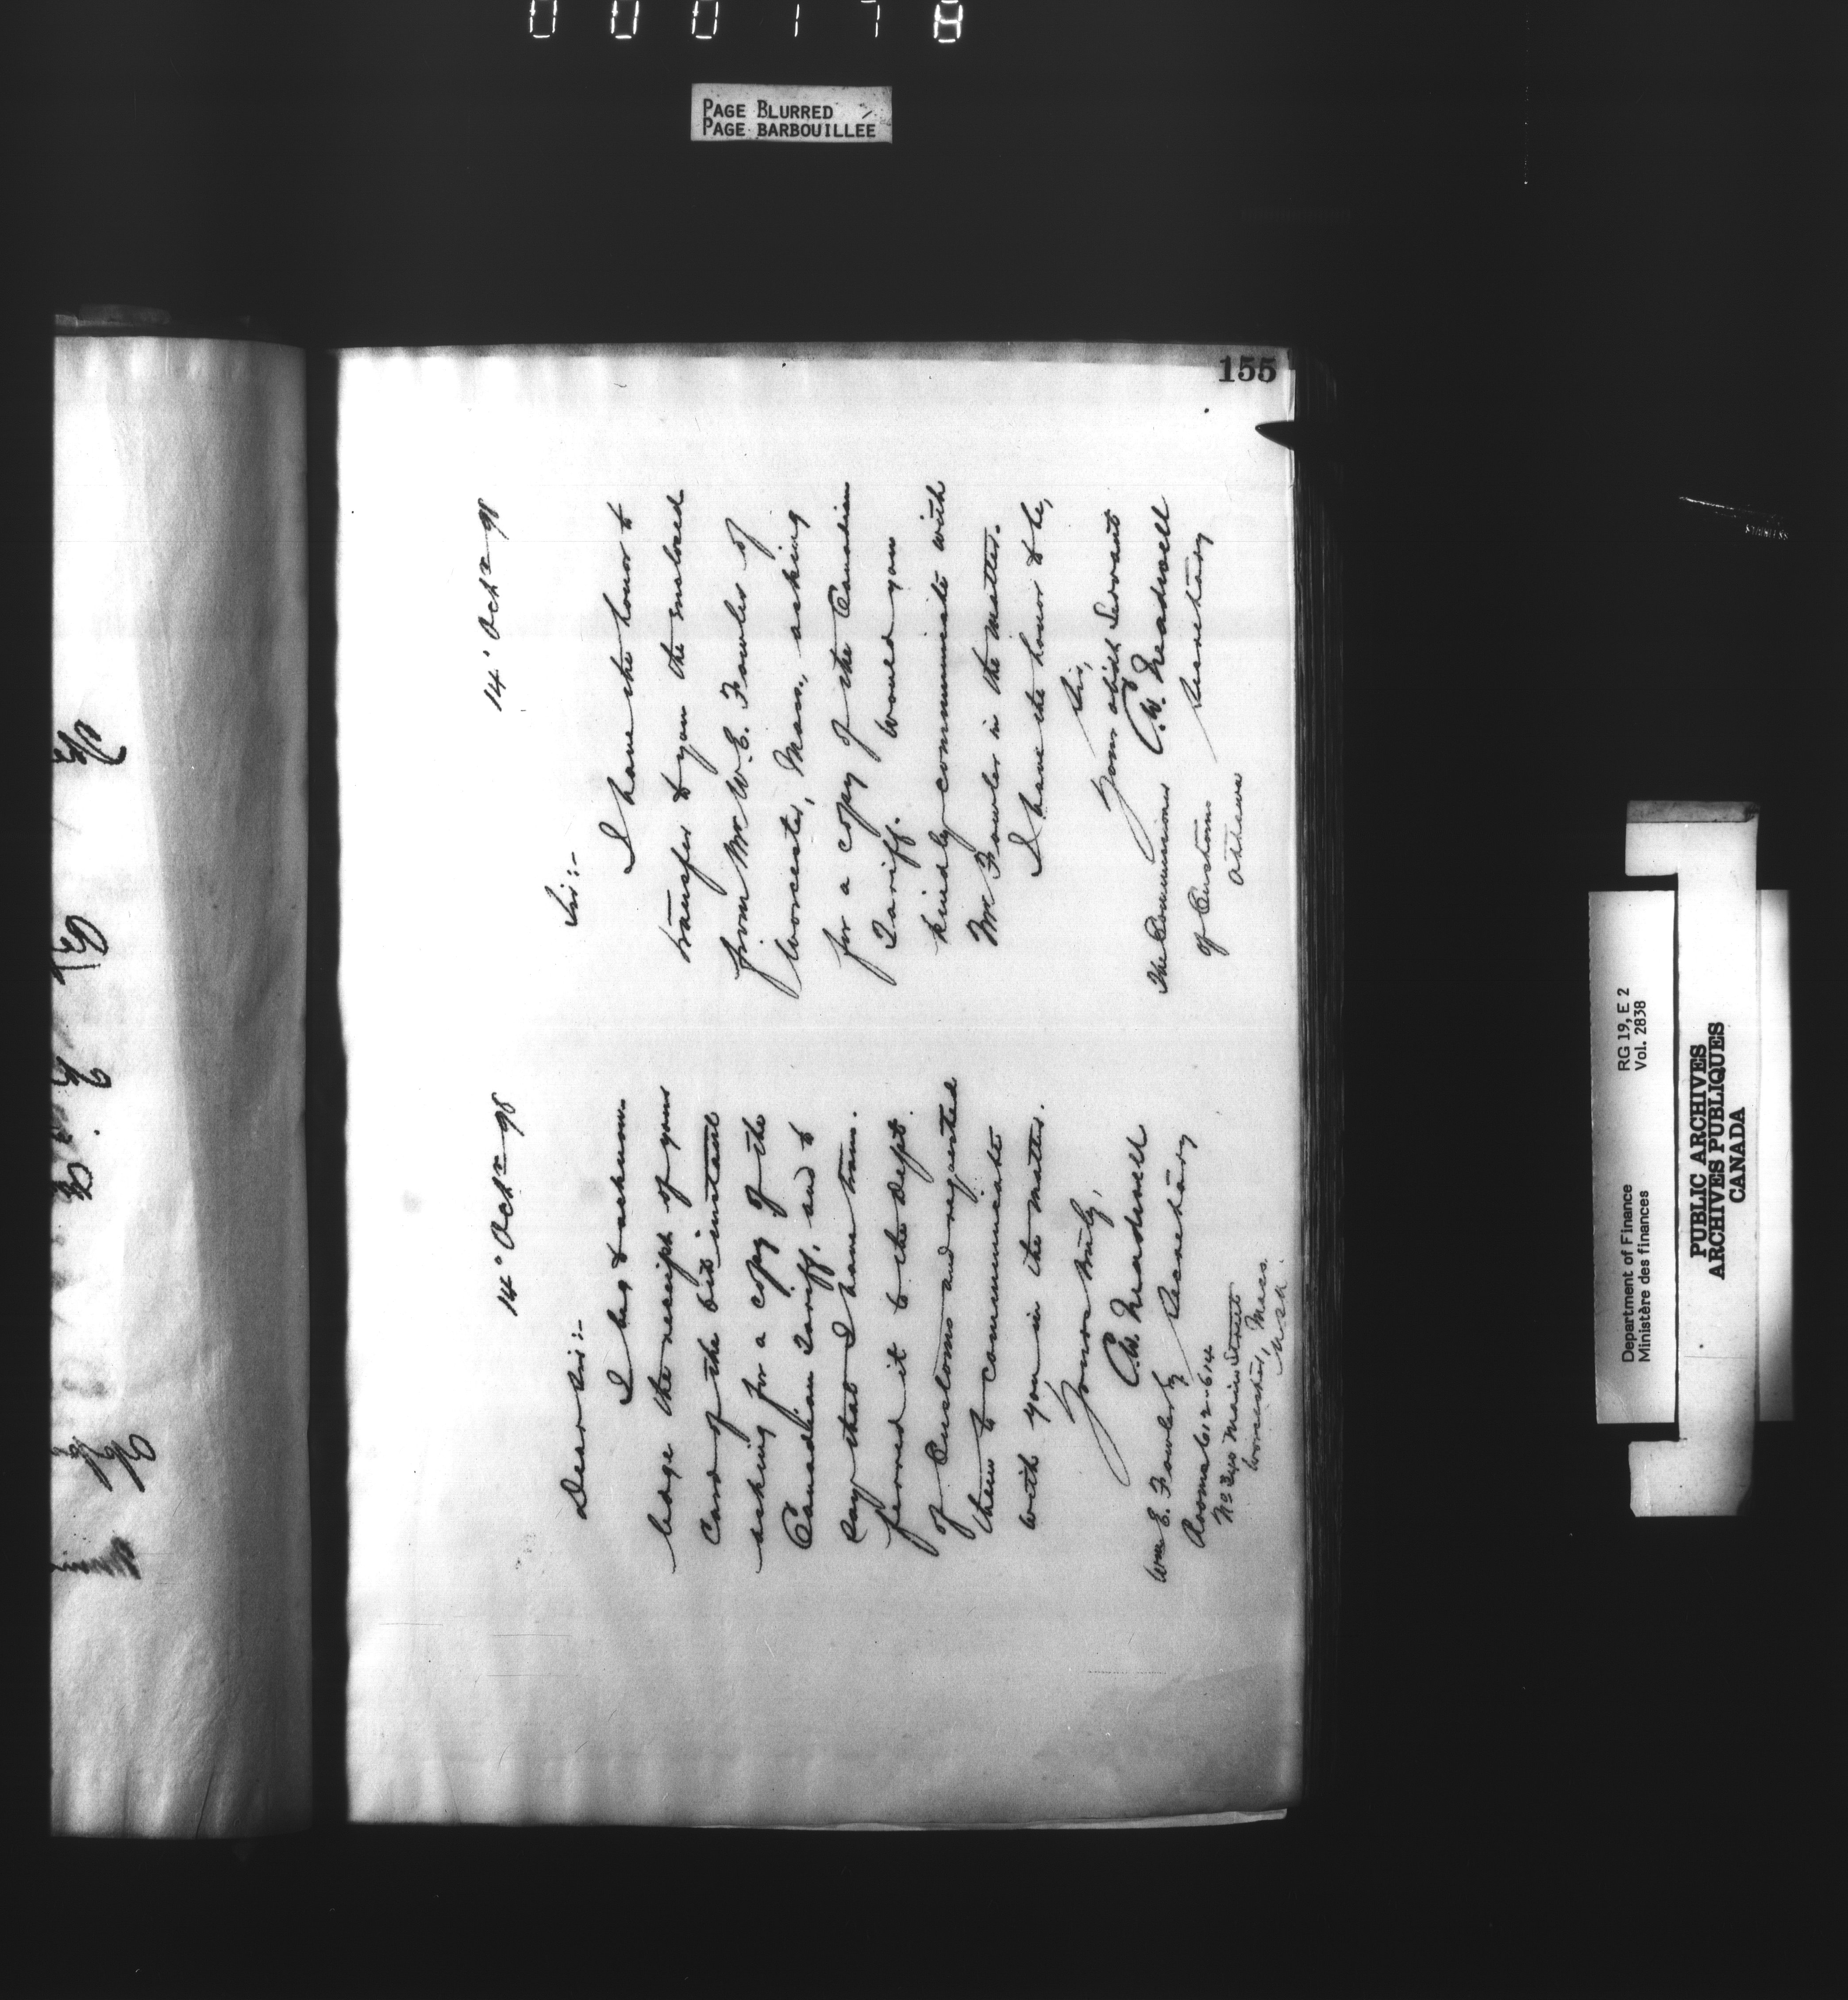 000178
PAGE BLURRED
PAGE BARBOUILLEE
155
14° Octr 98
Dear Sir:-
I beg to acknow-
ledge the receipt of your
card of the 6th instant
asking for a copy of the
Canadian Tariff, and to
say that I have trans-
ferred it to the Dept.
of Customs and requested
them to communicate
with you in the matter.
Yours truly,
C.W. Treadwell
Secretary
Wm E. Fowler Esq
Rooms 612-614
No 340 Main Street
Worcester, Mass.
U.S.A.
14° Octr 98
Sir:-
I have the honor to
transfer to you the enclosed
from Mr W.E. Fowler of
Worcester, Mass., asking
for a copy of the Canadian
Tariff. Would you
kindly communicate with
Mr Fowler in the matter.
I have the honor to be,
Sir,
Your obdt Servant
C.W. Treadwell
Secretary
The Commissioner
of Customs
Ottawa
Department of Finance
Ministère des finances
RG 19, E 2
Vol. 2838
PUBLIC ARCHIVES
ARCHIVES PUBLIQUES
CANADA